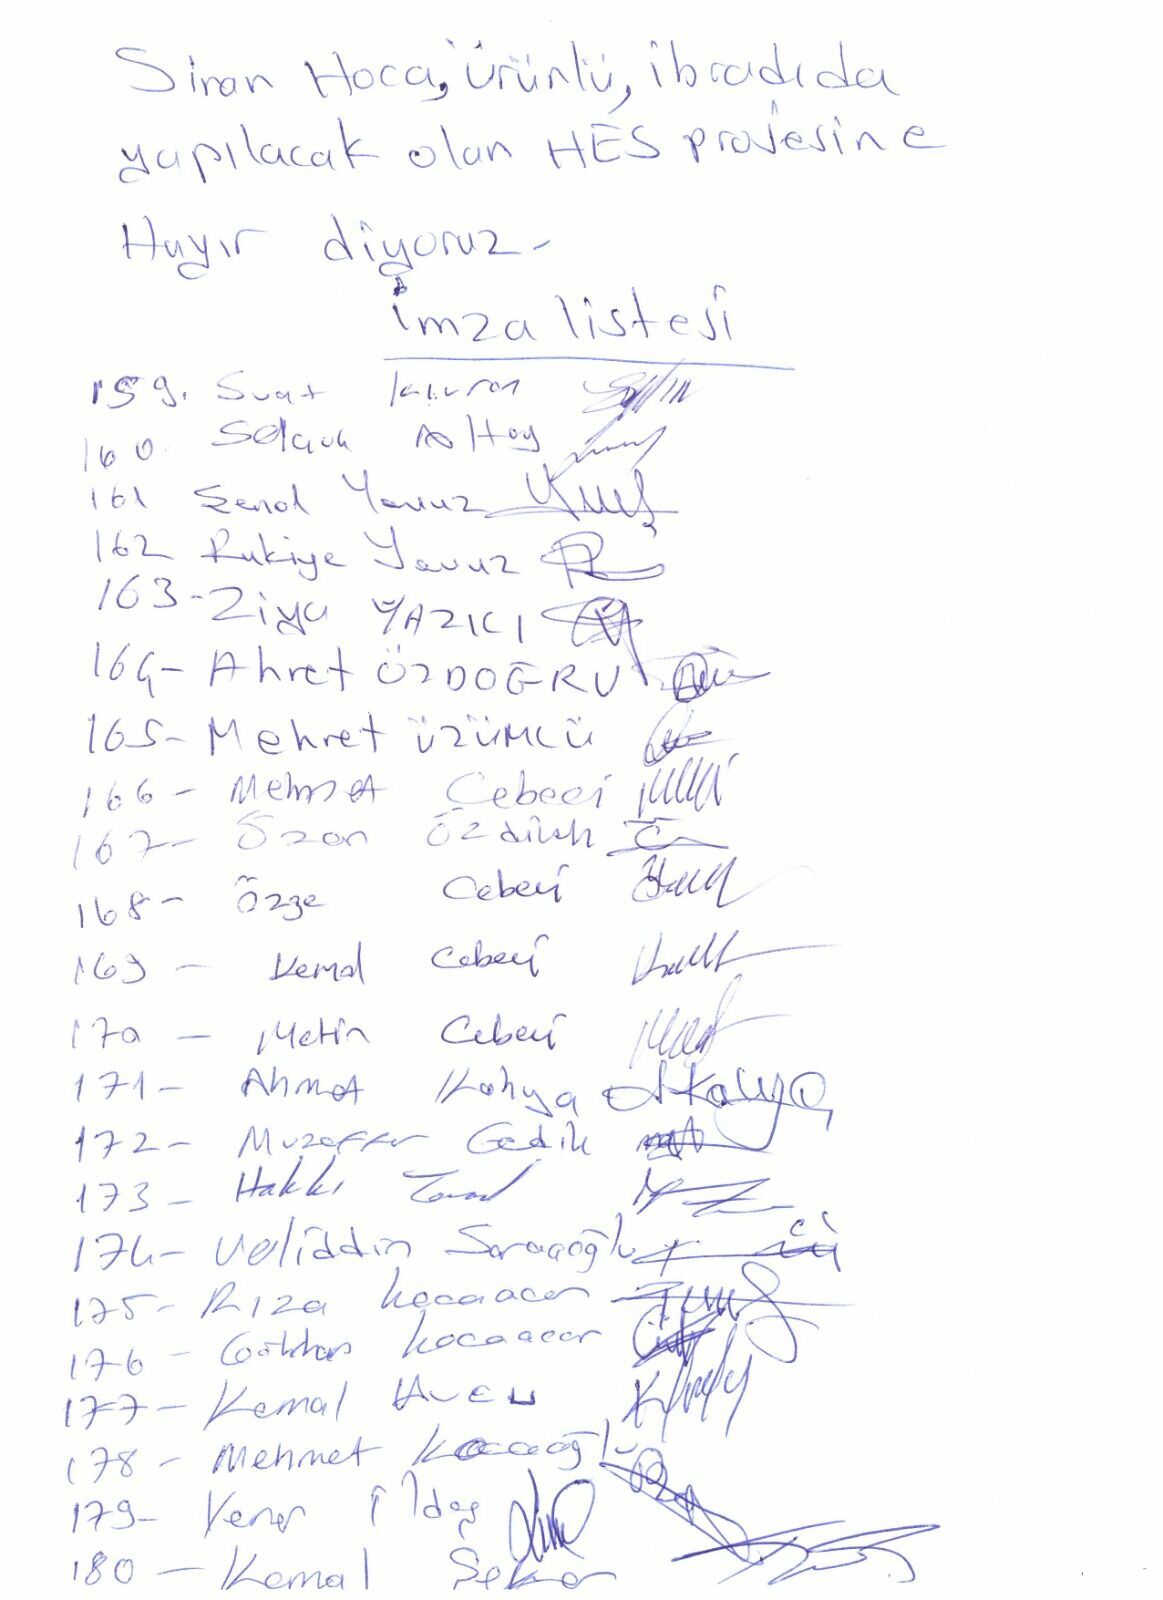 Sinan Hoca, ürünlü, ibradıda
yapılacak olan HES projesine
Hayır diyoruz-
imza listesi
159. Suat
160 Selcuk Altay
161 Şenol Yavuz
162 Rukiye Yavuz
163- Ziya YAZICI
164- Ahmet ÖZDOĞRU
165- Mehmet ÜZÜMCÜ
166- Mehmet Cebeci
167- Ozan Özdilek
168- Özge Cebeci
169 - Kemal Cebeci
170 - Metin Cebeci
171- Ahmet Kahya
172- Muzaffer Gedik
173- Hakkı
174- Veliddin Saraçoğlu
175- Rıza Kocaacar
176 - Gökhan Kocaacar
177- Kemal AVCU
178- Mehmet
179- Yener ildaş
180- Kemal Şeker